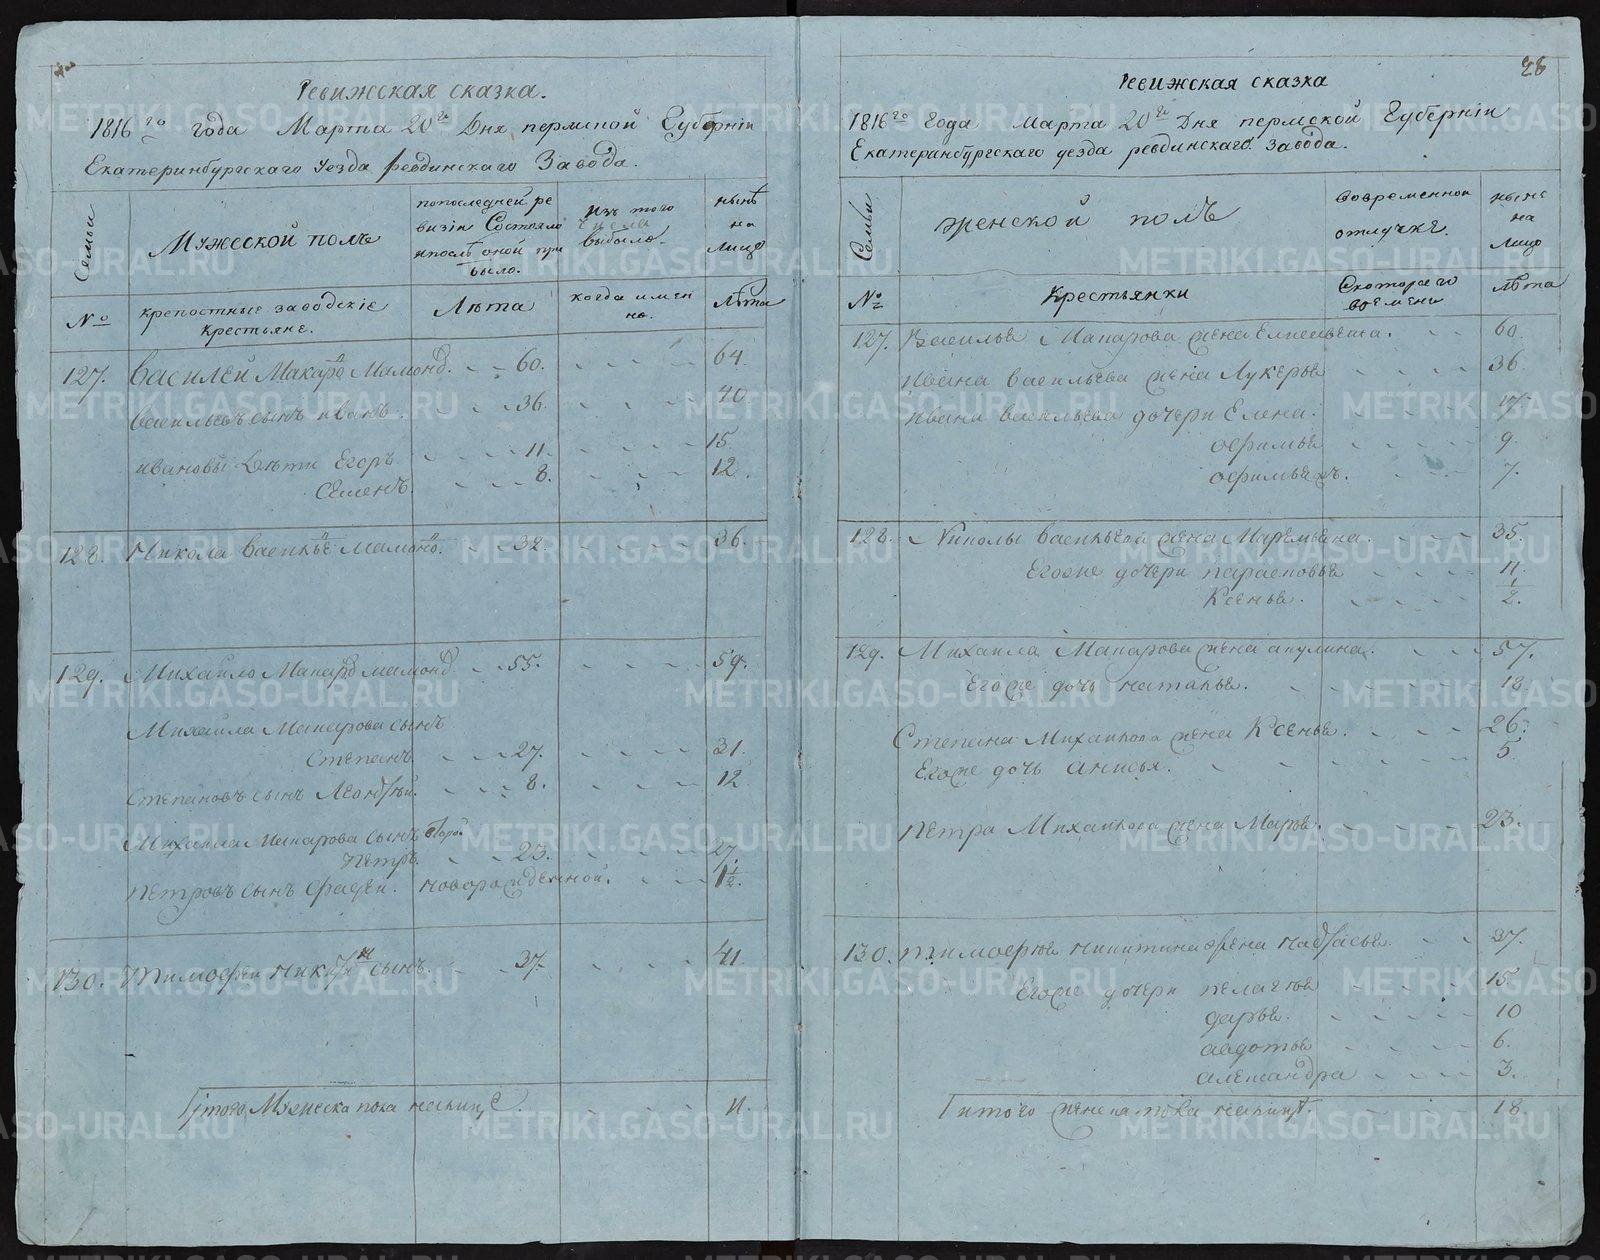 Ревижская сказка.
1816 го года Марта 20 го Дня пермской Губернiи
Екатеринбургскаго Уезда ревдинскаго Завода.
Семьи
Мужеской полъ
попоследней ре
визiи Состояло
ипослѣ оной при
было.
изъ того
Числа
выбыло.
нынѣ
на
лицо
№
крепостные заводскiе
крестьяне.
Лѣта
когда имен
но.
Лѣта
127. Василей Макаровъ Мамоновъ. 60. 64
Васильевъ сынъ иванъ. 36. 40
ивановы Дѣти Егоръ 11. 15.
Семенъ. 8. 12.
128. Никола Васильевъ Мамоновъ. 32. 36.
129. Михайло Макаровъ мамоновъ 55. 59.
Михаила Макарова сынъ
Степанъ. 27. 31.
Степановъ сынъ Леонтѣй. 8. 12
Михаила Макарова сынъ второй
Петръ. 23. 27.
Петровъ сынъ Фадеи. новорожденной. 1/2.
130. Тимофеи никитинъ сынъ. 37. 41.
Итого Мужеска пола налицѣ. 11.
28
Ревижская сказка
1816 го Года Марта 20 го Дня пермской Губернiи
Екатеринбургскаго уезда ревдинскаго Завода.
Семьи
женской полъ
вовременной
отлучкѣ.
ныне
на
лицо
№
Крестьянки
Скотораго
времени
Лѣта
127. Василья Макарова жена Елисавета. 60.
ивана васильева жена Лукерья 36.
ивана васильева дочери Елена. 17.
офимья 9.
офимья жъ. 7.
128. Николы васильева жена Маремьяна. 35.
Егоже дочери парасковья 11.
Ксенья. 1/2.
129. Михаила Макарова жена акулина. 57.
Егоже дочь наталья. 18
Степана Михаилова жена Ксенья. 26.
Егоже дочь анисья. 5.
Петра Михаилова жена Марья. 23.
130. Тимофея никитина жена настасья. 37.
Егоже дочери пелагея 15.
дарья. 10
авдотья 6.
александра 3.
итого женска пола налицѣ. 18.
METRIKI.GASO-URAL.RU